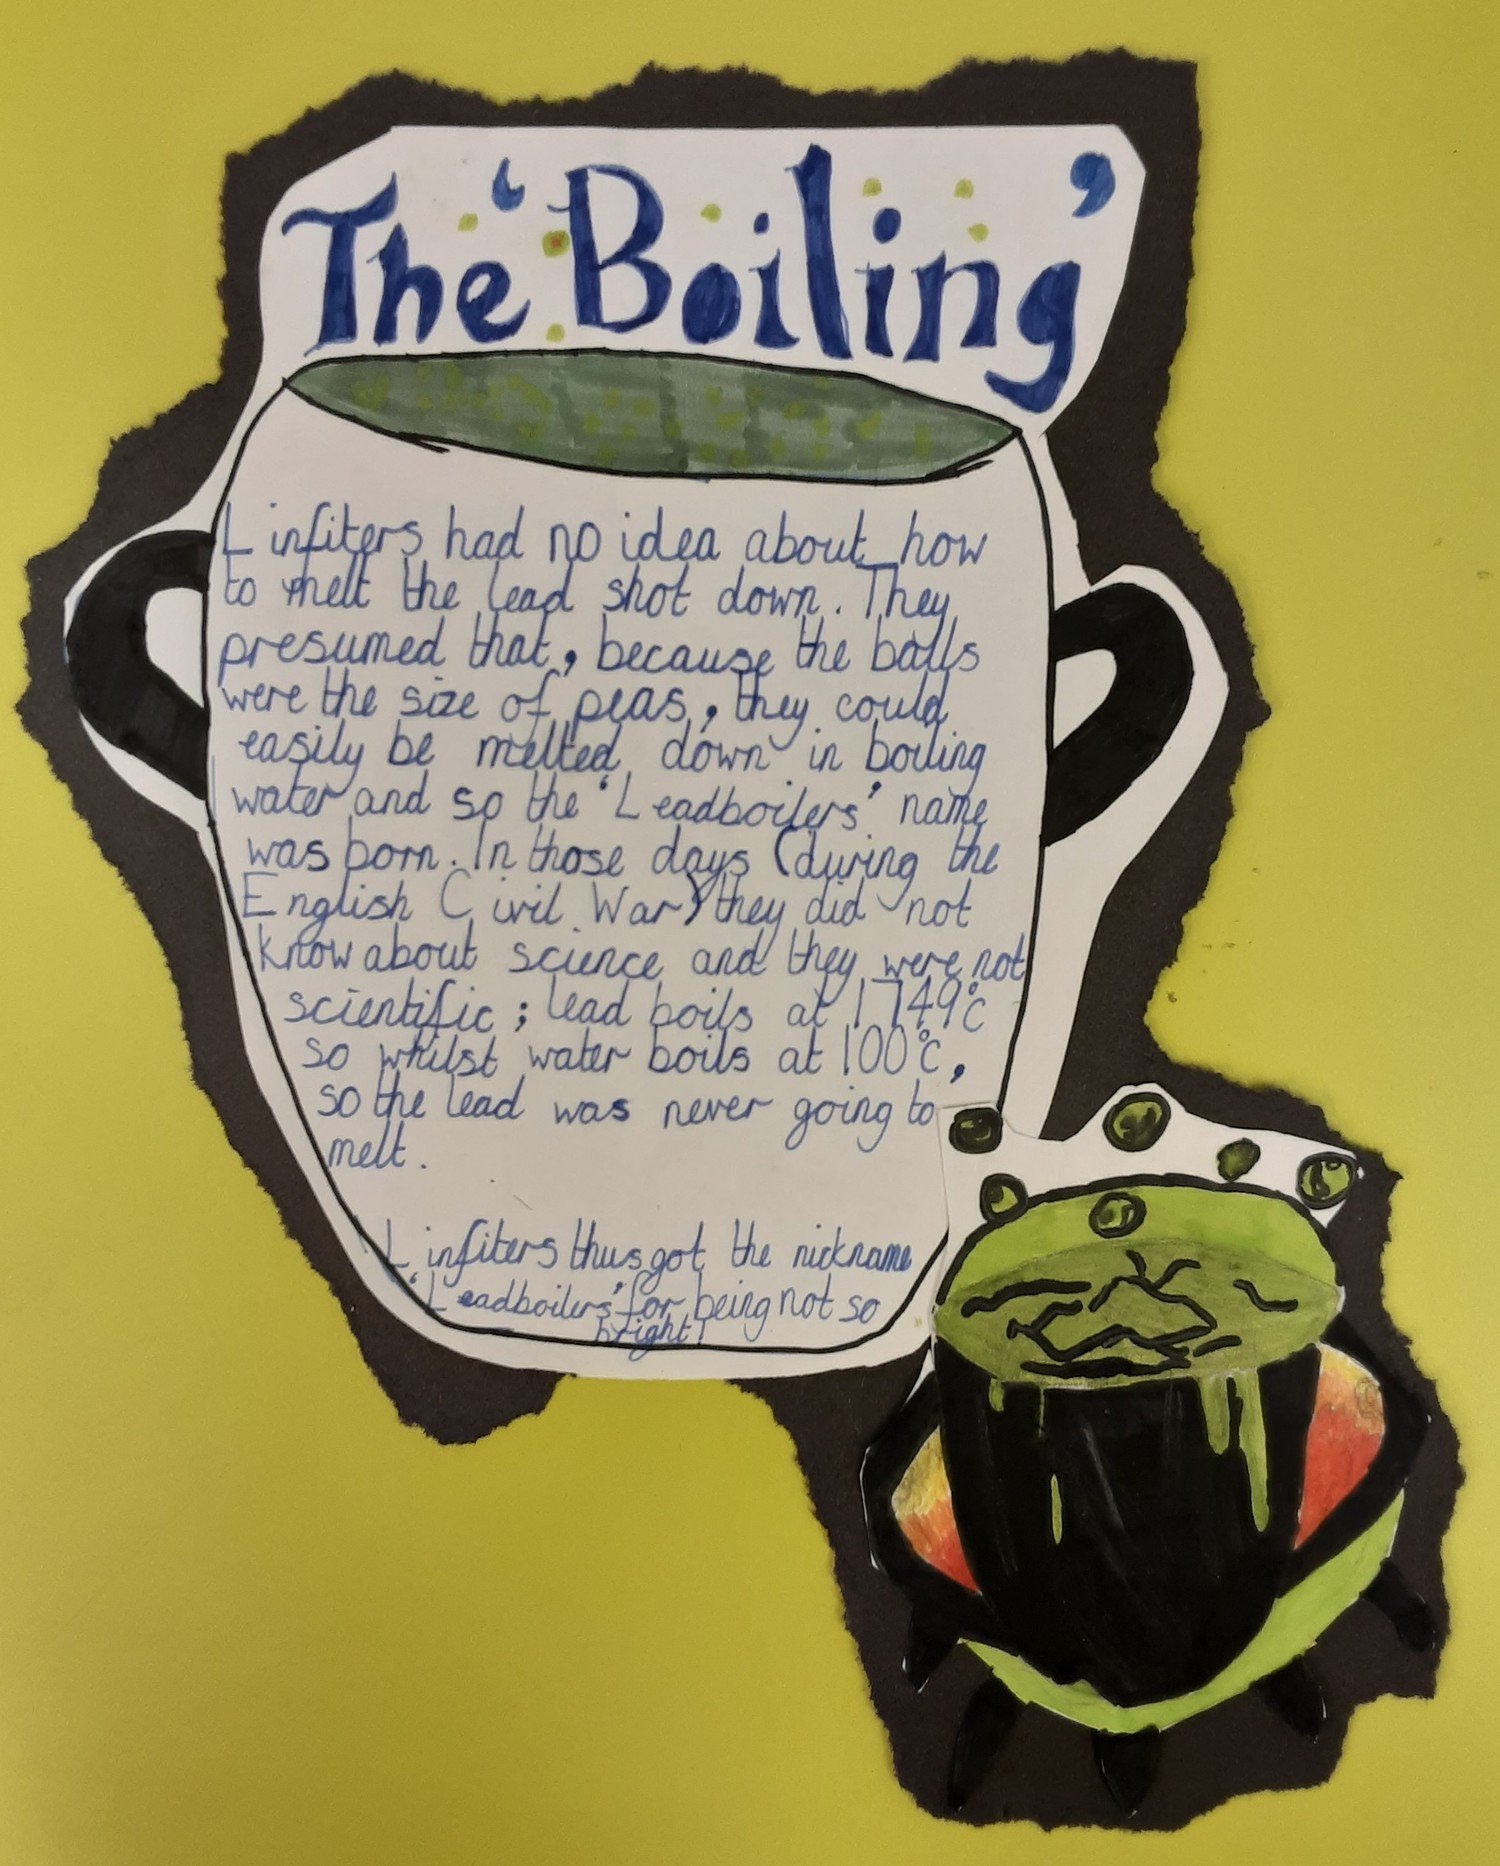 The 'Boiling'
Linfiters had no idea about how
to melt the lead shot down. They
presumed that, because the balls
were the size of peas, they could
easily be melted down in boiling
water and so the 'Leadboilers' name
was born. In those days (during the
English Civil War) they did not
know about science and they were not
scientific; lead boils at 1749°C
so whilst water boils at 100°C,
so the lead was never going to
melt.
Linfiters thus got the nickname
'Leadboilers' for being not so
bright!